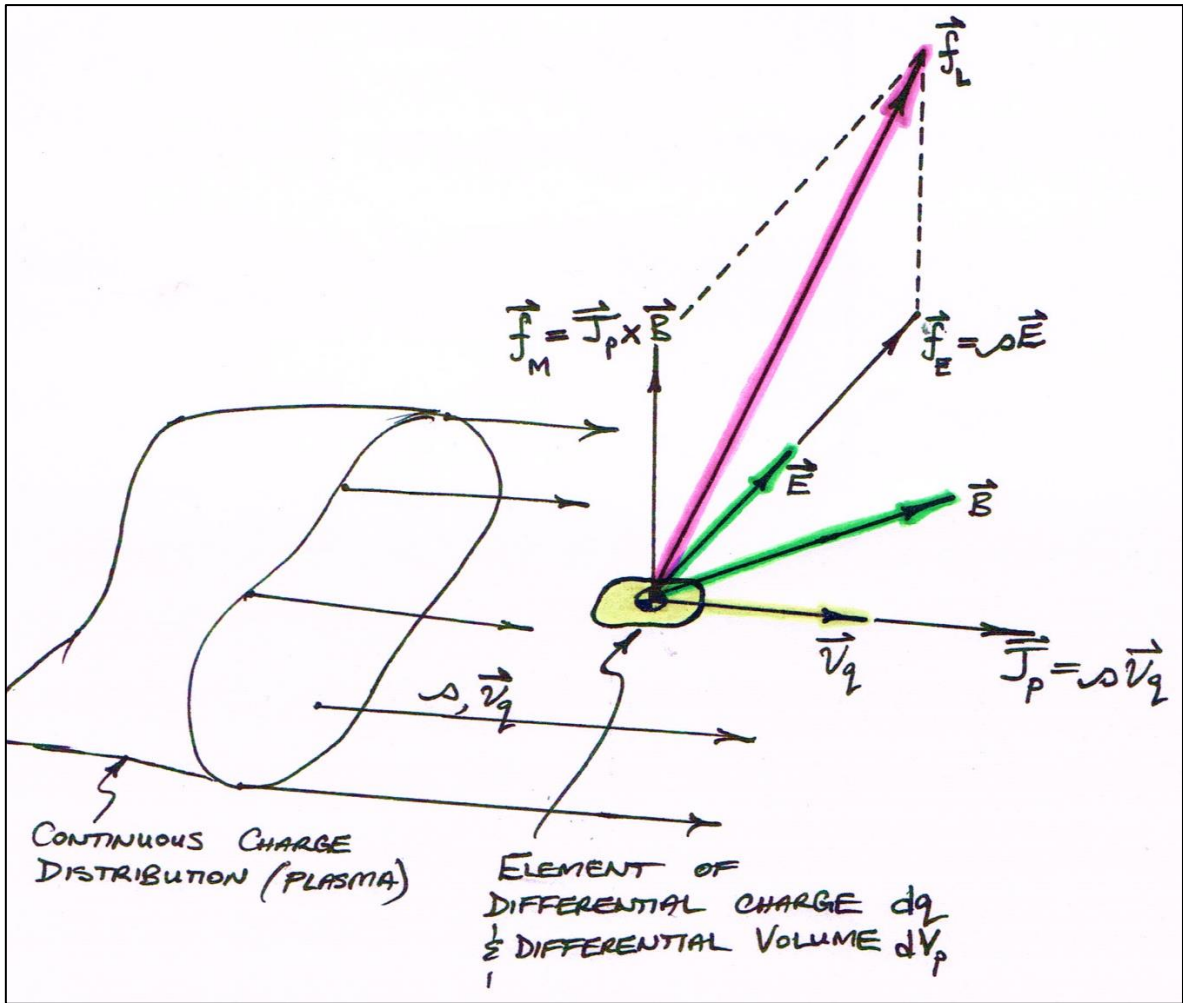 f⃗_L
f⃗_M = J⃗_p × B⃗
f⃗_E = ρE⃗
E⃗
B⃗
v⃗_q
J⃗_p = ρv⃗_q
ρ, v⃗_q
CONTINUOUS CHARGE
DISTRIBUTION (PLASMA)
ELEMENT OF
DIFFERENTIAL CHARGE dq
& DIFFERENTIAL VOLUME dV_p